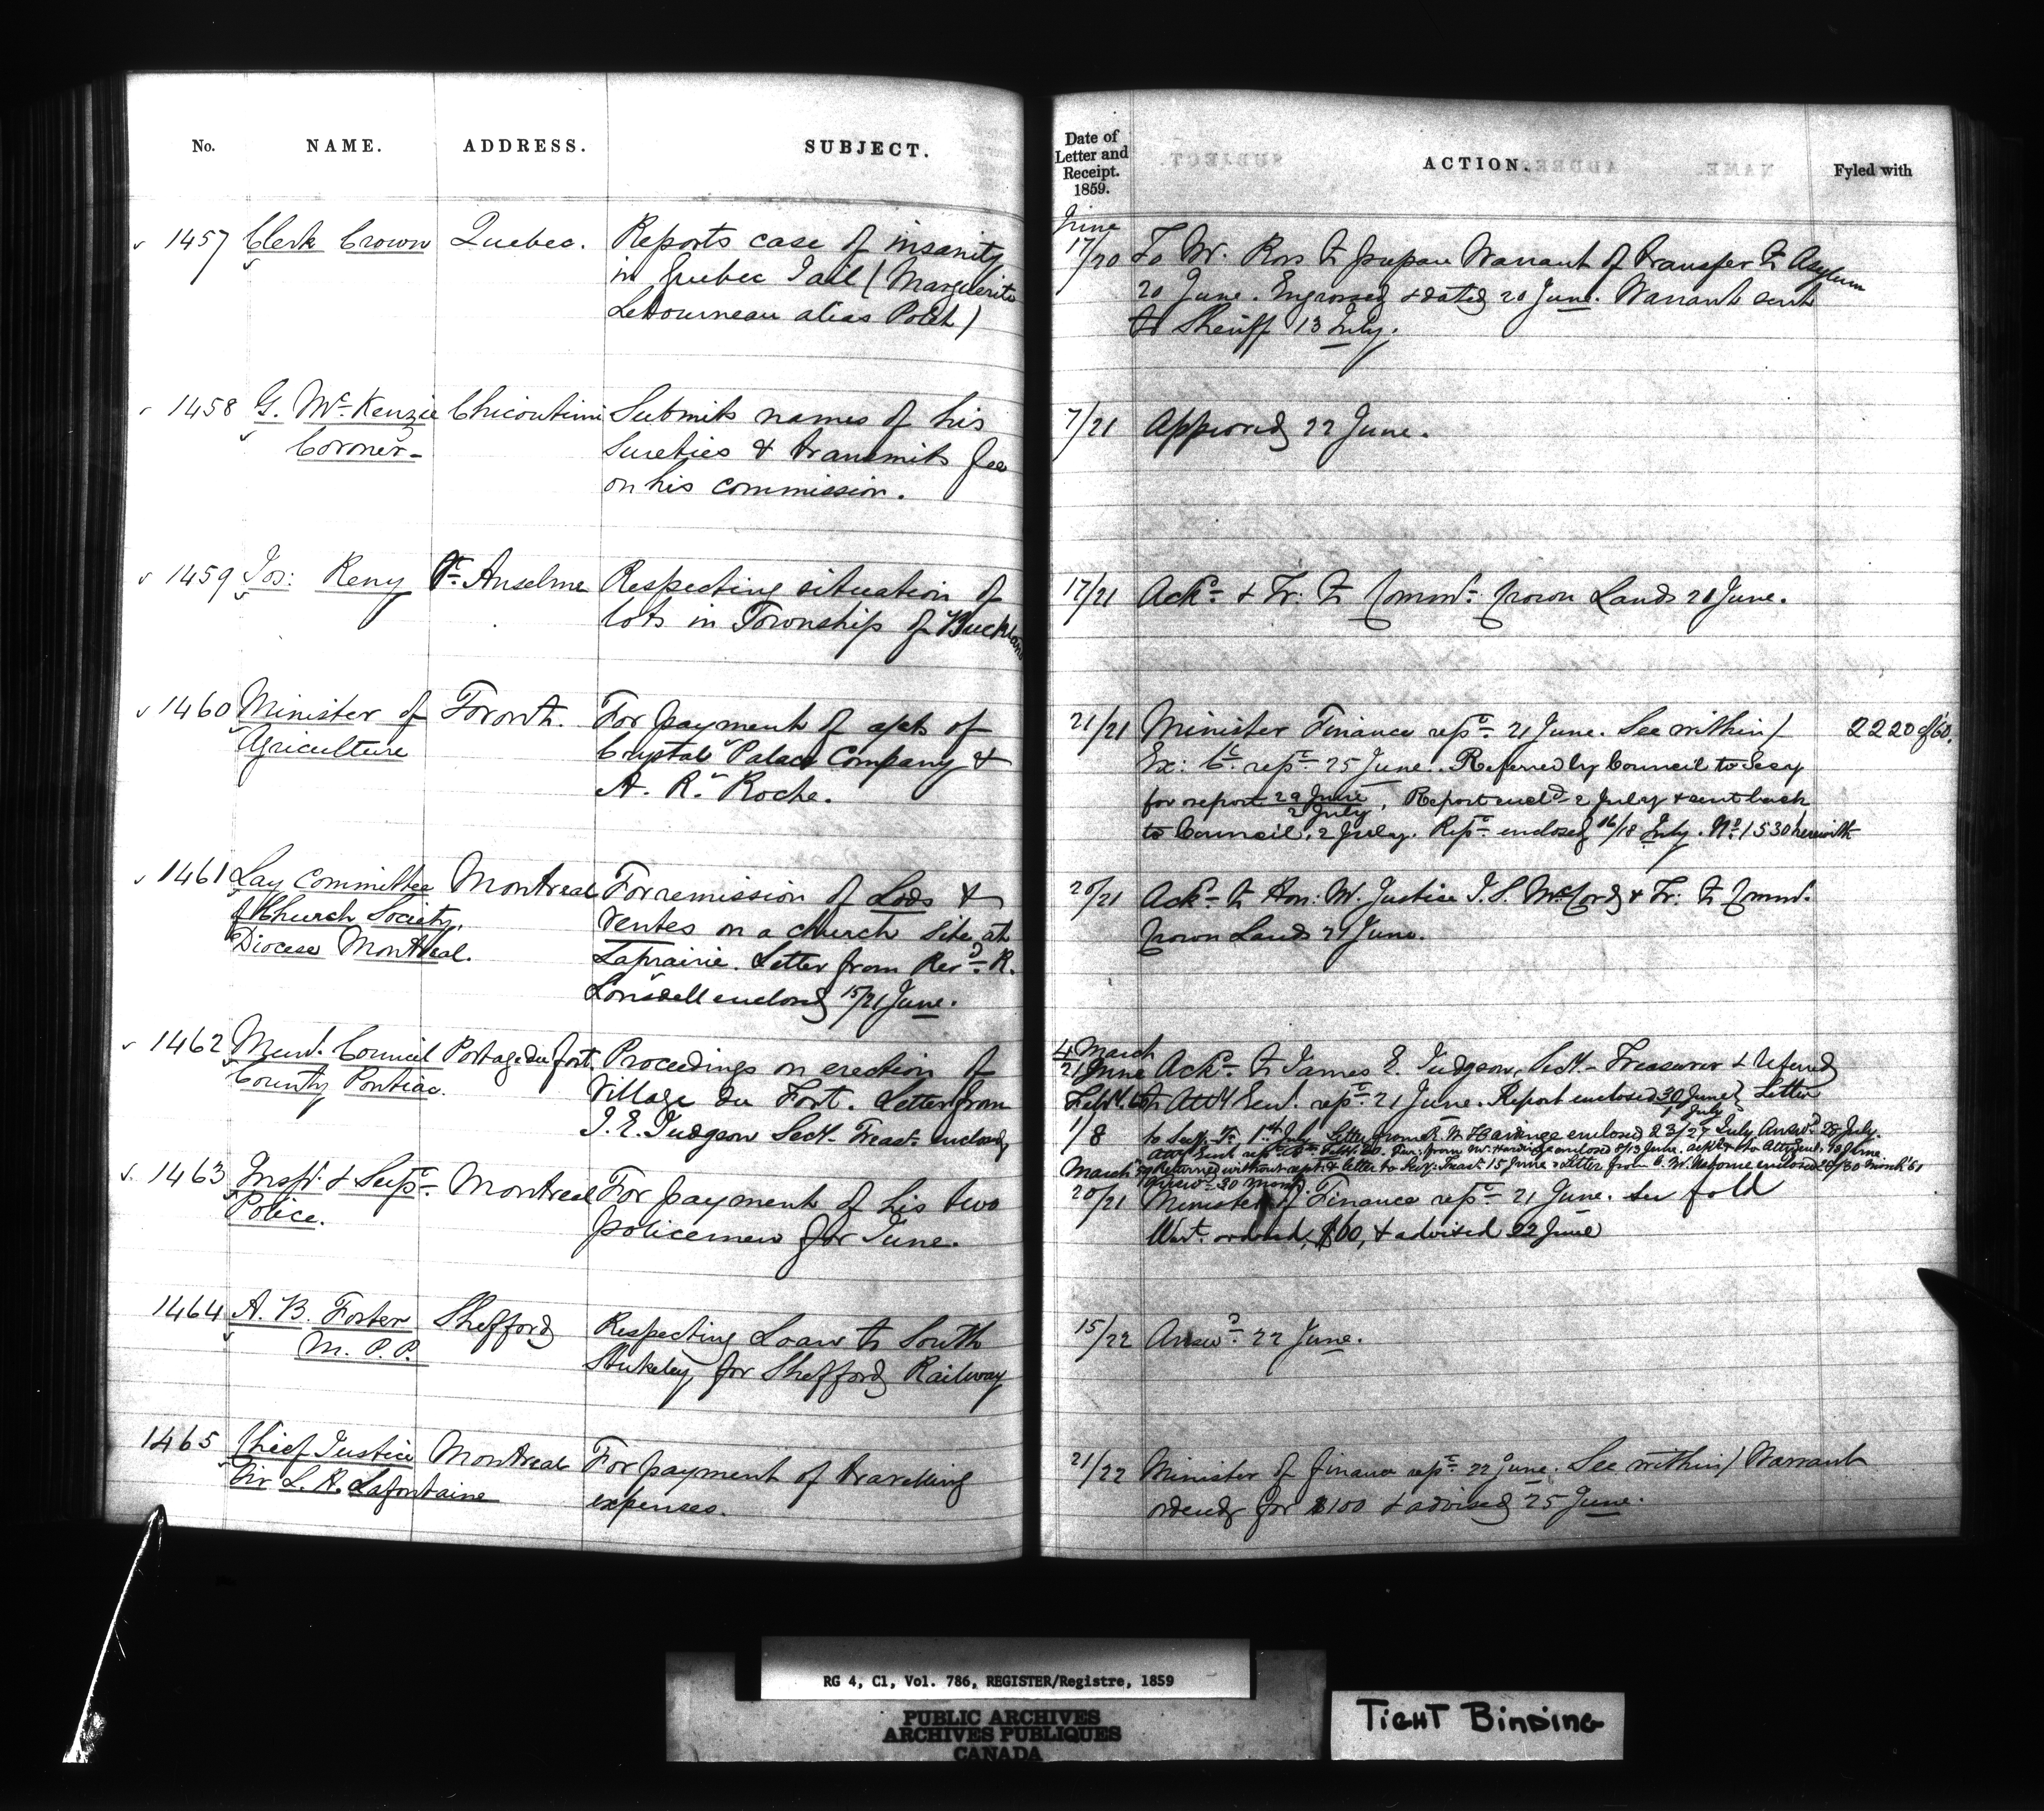 No. NAME. ADDRESS. SUBJECT.
Date of Letter and Receipt. 1859. ACTION. Fyled with
June
1457 Clerk Crown Quebec. Reports case of insanity
in Quebec Jail (Marguerite
Letourneau alias Polet)
17/20 To Mr. Ross to prepare Warrant of transfer to Asylum
20 June. Engrossed & dated 20 June. Warrant sent
to Sheriff 13 July.
1458 G. McKenzie Chicoutimi Submits names of his
Coroner- sureties & transmits fee
on his commission.
7/21 Approved 22 June.
1459 Jos: Remy St. Anselme Respecting situation of
lots in Township of Buckland
17/21 Ackd & Tr. to Commr. Crown Lands 21 June.
1460 Minister of Toronto. For payment of accts of
Agriculture Crystal Palace Company &
A. R. Roche.
21/21 Minister Finance rept. 21 June. See within/ 2220 of '60.
Ex: C. rept. 25 June. Referred by Council to Secy
for report 29 June / 2 July. Report encld 2 July & sent back
to Council, 2 July. Rept enclosed 16/18 July. No. 1530 herewith
1461 Lay Committee Montreal For remission of Lods &
of Church Society, ventes on a church site at
Diocese Montreal. Laprairie. Letter from Revd. R.
Lonsdell enclosed 15/21 June.
20/21 Ackd to Hon: Mr. Justice J. S. McCord & Tr: to Commr.
Crown Lands 21 June.
1462 Munl. Council Portage du fort. Proceedings on erection of
County Pontiac. Village du Fort. Letter from
J. E. Judgson Secy- Treasr enclosed
4 March / 21 June Ackd to James E. Judgson, Secy- Treasurer & referred
to Atty Genl. rept. 21 June. Report enclosed 30 June / 1 July Letter
to Secy. Tr. 1st July Letter from R. W. Hardinge enclosed 23/27 July Answd. 28 July.
Returned without rept. & letter to Secy: Treasr. 15 June. Letter from C. W. Usborne enclosed 28/30 March '61
Answd 30 March.
1463 Inspr. & Supt. Montreal For payment of his two
Police. policemen for June.
20/21 Minister of Finance rept. 21 June. See fold
Wart. ordered, $60, & advised 22 June
1464 A. B. Foster Shefford Respecting Loan to South
M. P. P. Stukeley for Shefford Railway
15/22 Answd. 22 June.
1465 Chief Justice Montreal For payment of travelling
Sir L. H. Lafontaine expenses.
21/22 Minister of finance rept. 22 June. See within/ Warrant
ordered for $100 & advised 25 June.
RG 4, C1, Vol. 786, REGISTER/Registre, 1859
PUBLIC ARCHIVES
ARCHIVES PUBLIQUES
CANADA
TIGHT BINDING